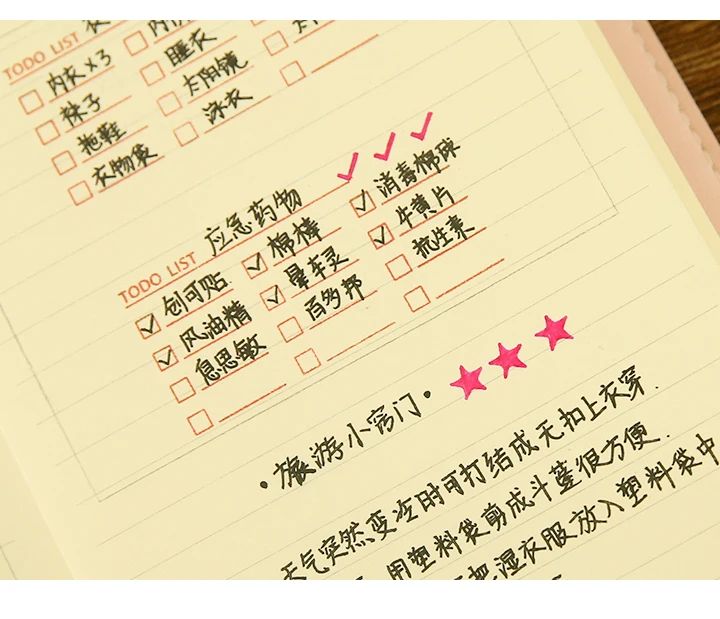 TODO LIST
内衣 x3
睡衣
袜子
太阳镜
拖鞋
泳衣
衣物袋
TODO LIST 应急药物
创可贴
棉棒
消毒棉球
风油精
晕车灵
牛黄片
息思敏
百多邦
抗生素
·旅游小窍门·
天气突然变冷时可打结成无扣上衣穿.
用塑料袋剪成斗篷很方便.
把湿衣服放入塑料袋中